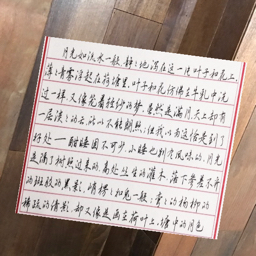 月光如流水一般,静静地泻在这一片叶子和花上。
薄薄的青雾浮起在荷塘里。叶子和花仿佛在牛乳中洗
过一样;又像笼着轻纱的梦。虽然是满月,天上却有
一层淡淡的云,所以不能朗照;但我以为这恰是到了
好处——酣眠固不可少,小睡也别有风味的。月光
是隔了树照过来的,高处丛生的灌木,落下参差不齐
的斑驳的黑影,峭楞楞如鬼一般;弯弯的杨柳的
稀疏的倩影,却又像是画在荷叶上。塘中的月色